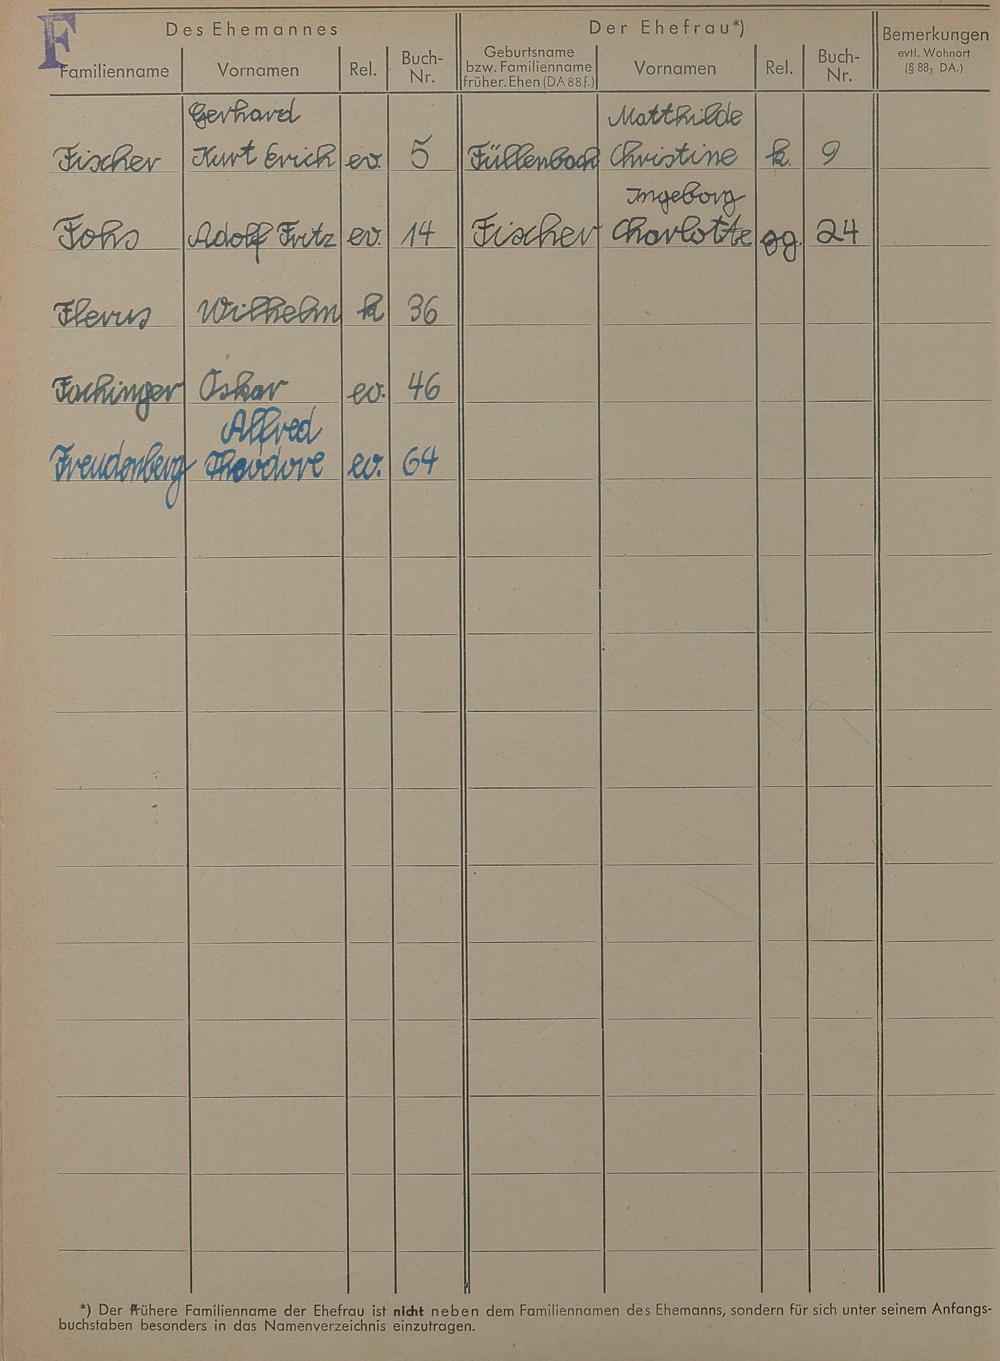 F
Des Ehemannes
Der Ehefrau*)
Bemerkungen
evtl. Wohnort
(§ 88, DA.)
Familienname
Vornamen
Rel.
Buch-
Nr.
Geburtsname
bzw. Familienname
früher. Ehen (DA 88f.)
Vornamen
Rel.
Buch-
Nr.
Gerhard Matthilde
Fischer Kurt Erich ev. 5 Füllenbach Christine k. 9
Ingeborg
Fohs Adolf Fritz ev. 14 Fischer Charlotte gg. 24
Flerus Wilhelm k 36
Fachinger Oskar ev. 46
Alfred
Freudenberg Theodore ev. 64
*) Der frühere Familienname der Ehefrau ist nicht neben dem Familiennamen des Ehemanns, sondern für sich unter seinem Anfangs-
buchstaben besonders in das Namenverzeichnis einzutragen.